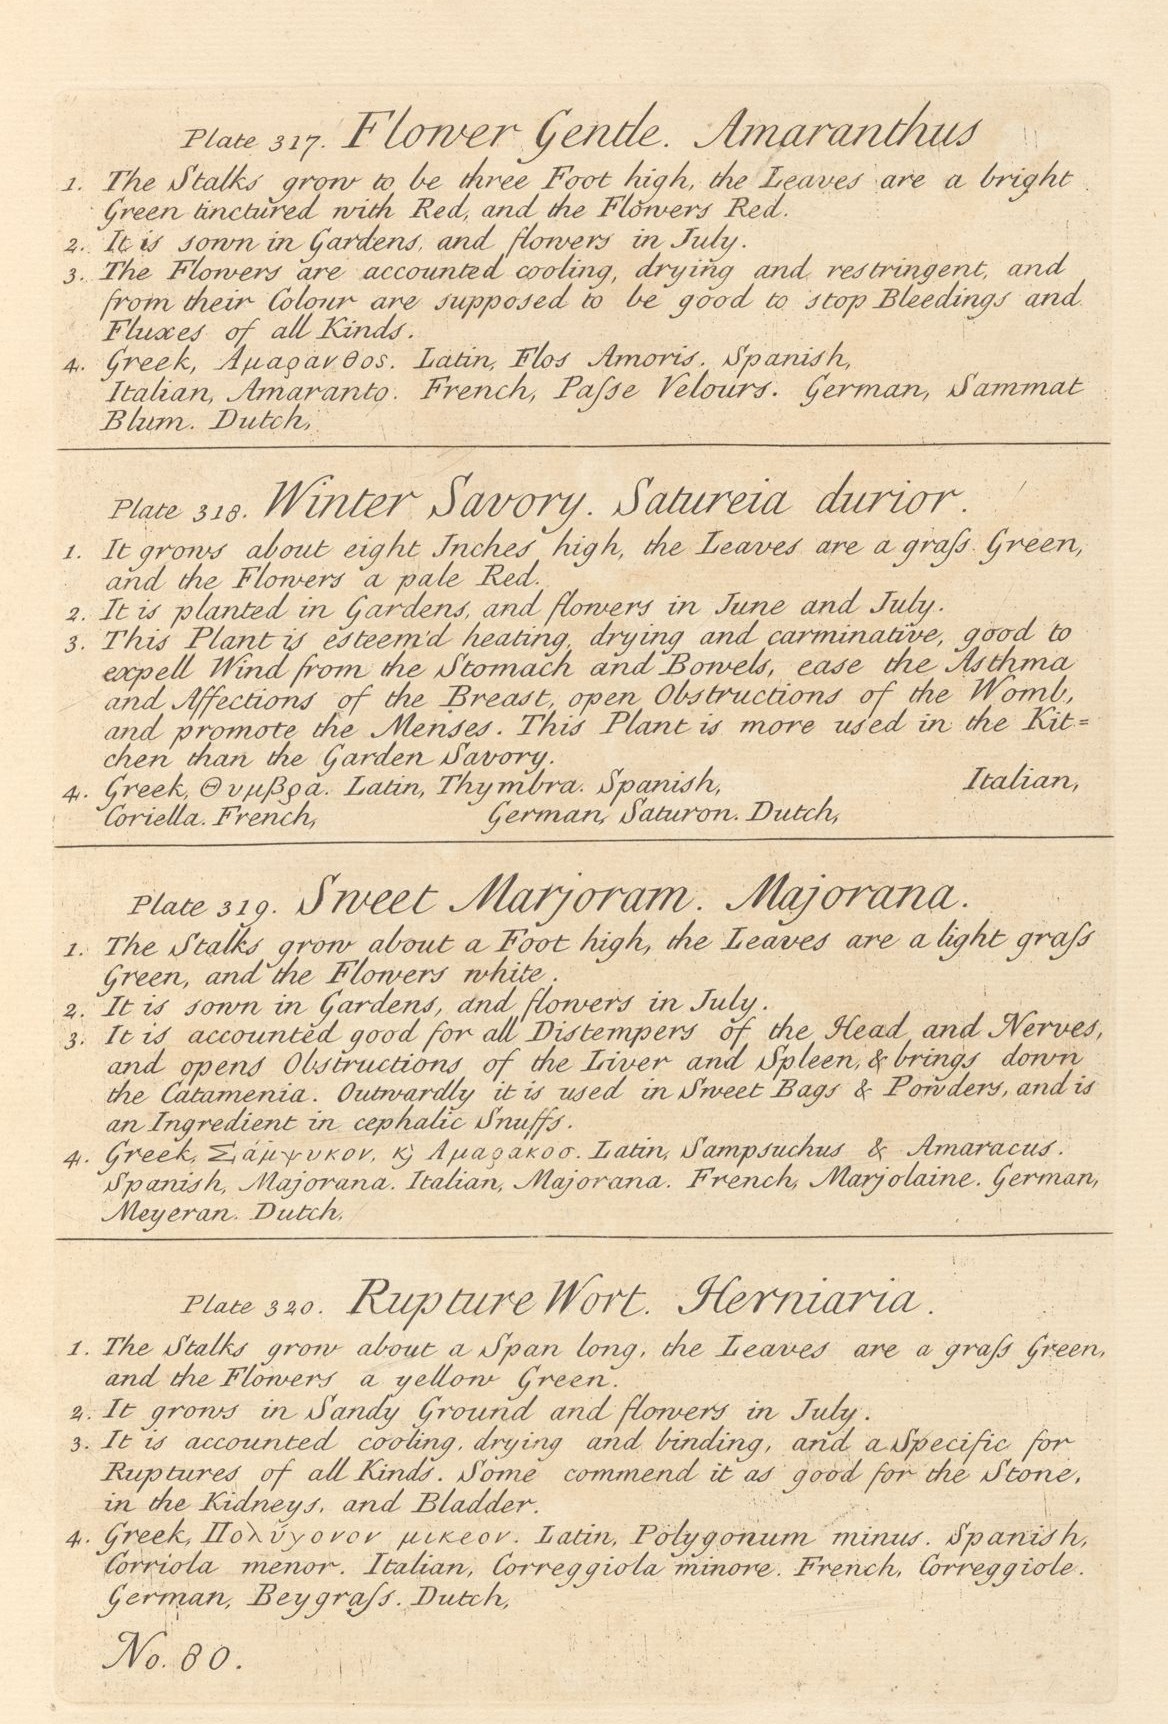 Plate 317. Flower Gentle. Amaranthus
1. The Stalks grow to be three Foot high, the Leaves are a bright
Green tinctured with Red, and the Flowers Red.
2. It is sown in Gardens, and flowers in July.
3. The Flowers are accounted cooling, drying and restringent, and
from their Colour are supposed to be good to stop Bleedings and
Fluxes of all Kinds.
4. Greek, Αμαράνθος. Latin, Flos Amoris. Spanish,
Italian, Amaranto. French, Paſse Velours. German, Sammat
Blum. Dutch,
Plate 318. Winter Savory. Satureia durior.
1. It grows about eight Inches high, the Leaves are a graſs Green,
and the Flowers a pale Red.
2. It is planted in Gardens, and flowers in June and July.
3. This Plant is esteem'd heating, drying and carminative, good to
expell Wind from the Stomach and Bowels, ease the Asthma
and Affections of the Breast, open Obstructions of the Womb,
and promote the Menses. This Plant is more used in the Kit=
chen than the Garden Savory.
4. Greek, Θυμβρά. Latin, Thymbra. Spanish, Italian,
Coriella. French, German, Saturon. Dutch,
Plate 319. Sweet Marjoram. Majorana.
1. The Stalks grow about a Foot high, the Leaves are a light graſs
Green, and the Flowers white.
2. It is sown in Gardens, and flowers in July.
3. It is accounted good for all Distempers of the Head and Nerves,
and opens Obstructions of the Liver and Spleen, & brings down
the Catamenia. Outwardly it is used in Sweet Bags & Powders, and is
an Ingredient in cephalic Snuffs.
4. Greek, Σάμψυκον, κ̀ Αμαρακοσ. Latin, Sampsuchus & Amaracus.
Spanish, Majorana. Italian, Majorana. French, Marjolaine. German,
Meyeran. Dutch,
Plate 320. Rupture Wort. Herniaria.
1. The Stalks grow about a Span long, the Leaves are a graſs Green,
and the Flowers a yellow Green.
2. It grows in Sandy Ground and flowers in July.
3. It is accounted cooling, drying and binding, and a Specific for
Ruptures of all Kinds. Some commend it as good for the Stone,
in the Kidneys, and Bladder.
4. Greek, Πολύγονον μικεον. Latin, Polygonum minus. Spanish,
Corriola menor. Italian, Correggiola minore. French, Correggiole.
German, Beygraſs. Dutch,
No. 80.